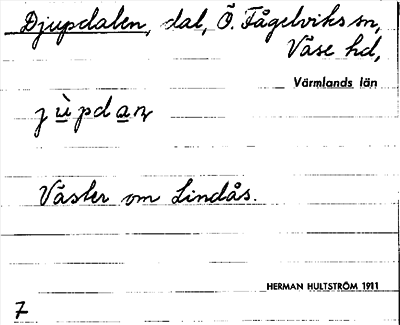 Djupdalen, dal, Ö. Fågelviks sn,
Väse hd,
Värmlands län
jùpdan
Väster om Lindås.
HERMAN HULTSTRÖM 1911
7